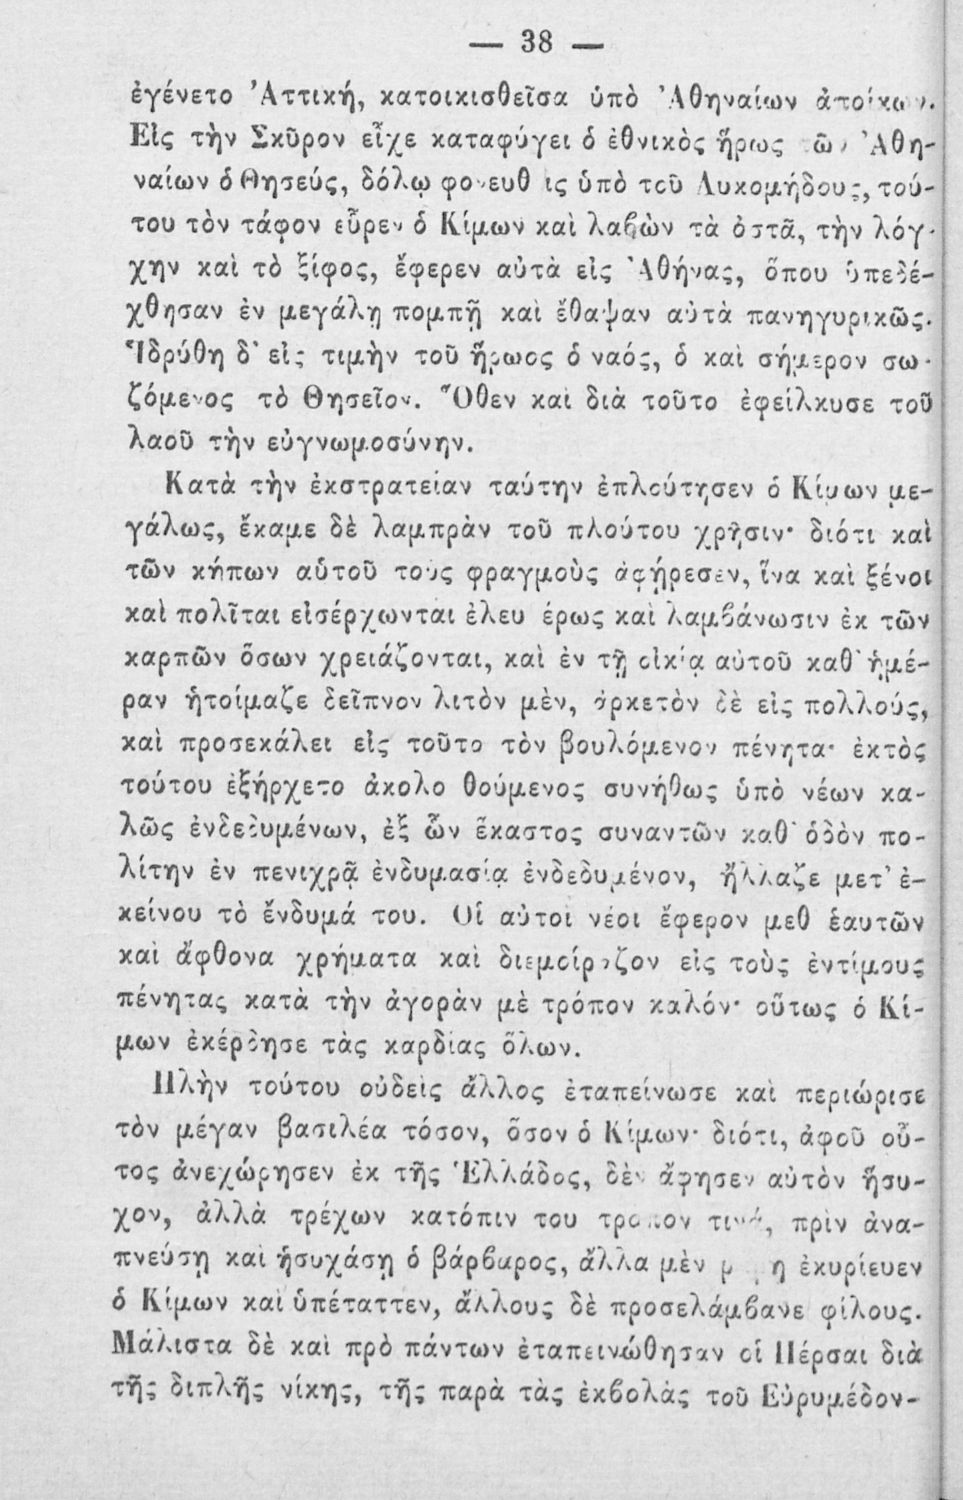 — 38 —
ἐγένετο Ἀττική, κατοικισθεῖσα ὑπὸ Ἀθηναίων ἀποίκων.
Εἰς τὴν Σκῦρον εἶχε καταφύγει ὁ ἐθνικὸς ἥρως τῶν Ἀθη-
ναίων ὁ Θησεύς, δόλῳ φονευθεὶς ὑπὸ τοῦ Λυκομήδους, τού-
του τὸν τάφον εὗρεν ὁ Κίμων καὶ λαβὼν τὰ ὀστᾶ, τὴν λόγ-
χην καὶ τὸ ξίφος, ἔφερεν αὐτὰ εἰς Ἀθήνας, ὅπου ὑπεδέ-
χθησαν ἐν μεγάλῃ πομπῇ καὶ ἔθαψαν αὐτὰ πανηγυρικῶς.
Ἱδρύθη δ' εἰς τιμὴν τοῦ ἥρωος ὁ ναός, ὁ καὶ σήμερον σω-
ζόμενος τὸ Θησεῖον. Ὅθεν καὶ διὰ τοῦτο ἐφείλκυσε τοῦ
λαοῦ τὴν εὐγνωμοσύνην.
Κατὰ τὴν ἐκστρατείαν ταύτην ἐπλούτησεν ὁ Κίμων με-
γάλως, ἔκαμε δὲ λαμπρὰν τοῦ πλούτου χρῆσιν· διότι καὶ
τῶν κήπων αὑτοῦ τοὺς φραγμοὺς ἀφήρεσεν, ἵνα καὶ ξένοι
καὶ πολῖται εἰσέρχωνται ἐλευθέρως καὶ λαμβάνωσιν ἐκ τῶν
καρπῶν ὅσων χρειάζονται, καὶ ἐν τῇ οἰκίᾳ αὐτοῦ καθ' ἡμέ-
ραν ἡτοίμαζε δεῖπνον λιτὸν μὲν, ἀρκετὸν δὲ εἰς πολλούς,
καὶ προσεκάλει εἰς τοῦτο τὸν βουλόμενον πένητα· ἐκτὸς
τούτου ἐξήρχετο ἀκολο θούμενος συνήθως ὑπὸ νέων κα-
λῶς ἐνδεδυμένων, ἐξ ὧν ἕκαστος συναντῶν καθ' ὁδὸν πο-
λίτην ἐν πενιχρᾷ ἐνδυμασίᾳ ἐνδεδυμένον, ἤλλαζε μετ' ἐ-
κείνου τὸ ἔνδυμά του. Οἱ αὐτοὶ νέοι ἔφερον μεθ ἑαυτῶν
καὶ ἄφθονα χρήματα καὶ διεμοίραζον εἰς τοὺς ἐντίμους
πένητας κατὰ τὴν ἀγορὰν μὲ τρόπον καλόν· οὕτως ὁ Κί-
μων ἐκέρδησε τὰς καρδίας ὅλων.
Πλὴν τούτου οὐδεὶς ἄλλος ἐταπείνωσε καὶ περιώρισε
τὸν μέγαν βασιλέα τόσον, ὅσον ὁ Κίμων· διότι, ἀφοῦ οὗ-
τος ἀνεχώρησεν ἐκ τῆς Ἑλλάδος, δὲν ἄφησεν αὐτὸν ἥσυ-
χον, ἀλλὰ τρέχων κατόπιν του τρόπον τινά, πρὶν ἀνα-
πνεύσῃ καὶ ἡσυχάσῃ ὁ βάρβαρος, ἄλλα μὲν μέρη ἐκυρίευεν
ὁ Κίμων καὶ ὑπέταττεν, ἄλλους δὲ προσελάμβανε φίλους.
Μάλιστα δὲ καὶ πρὸ πάντων ἐταπεινώθησαν οἱ Πέρσαι διὰ
τῆς διπλῆς νίκης, τῆς παρὰ τὰς ἐκβολὰς τοῦ Εὐρυμέδον-